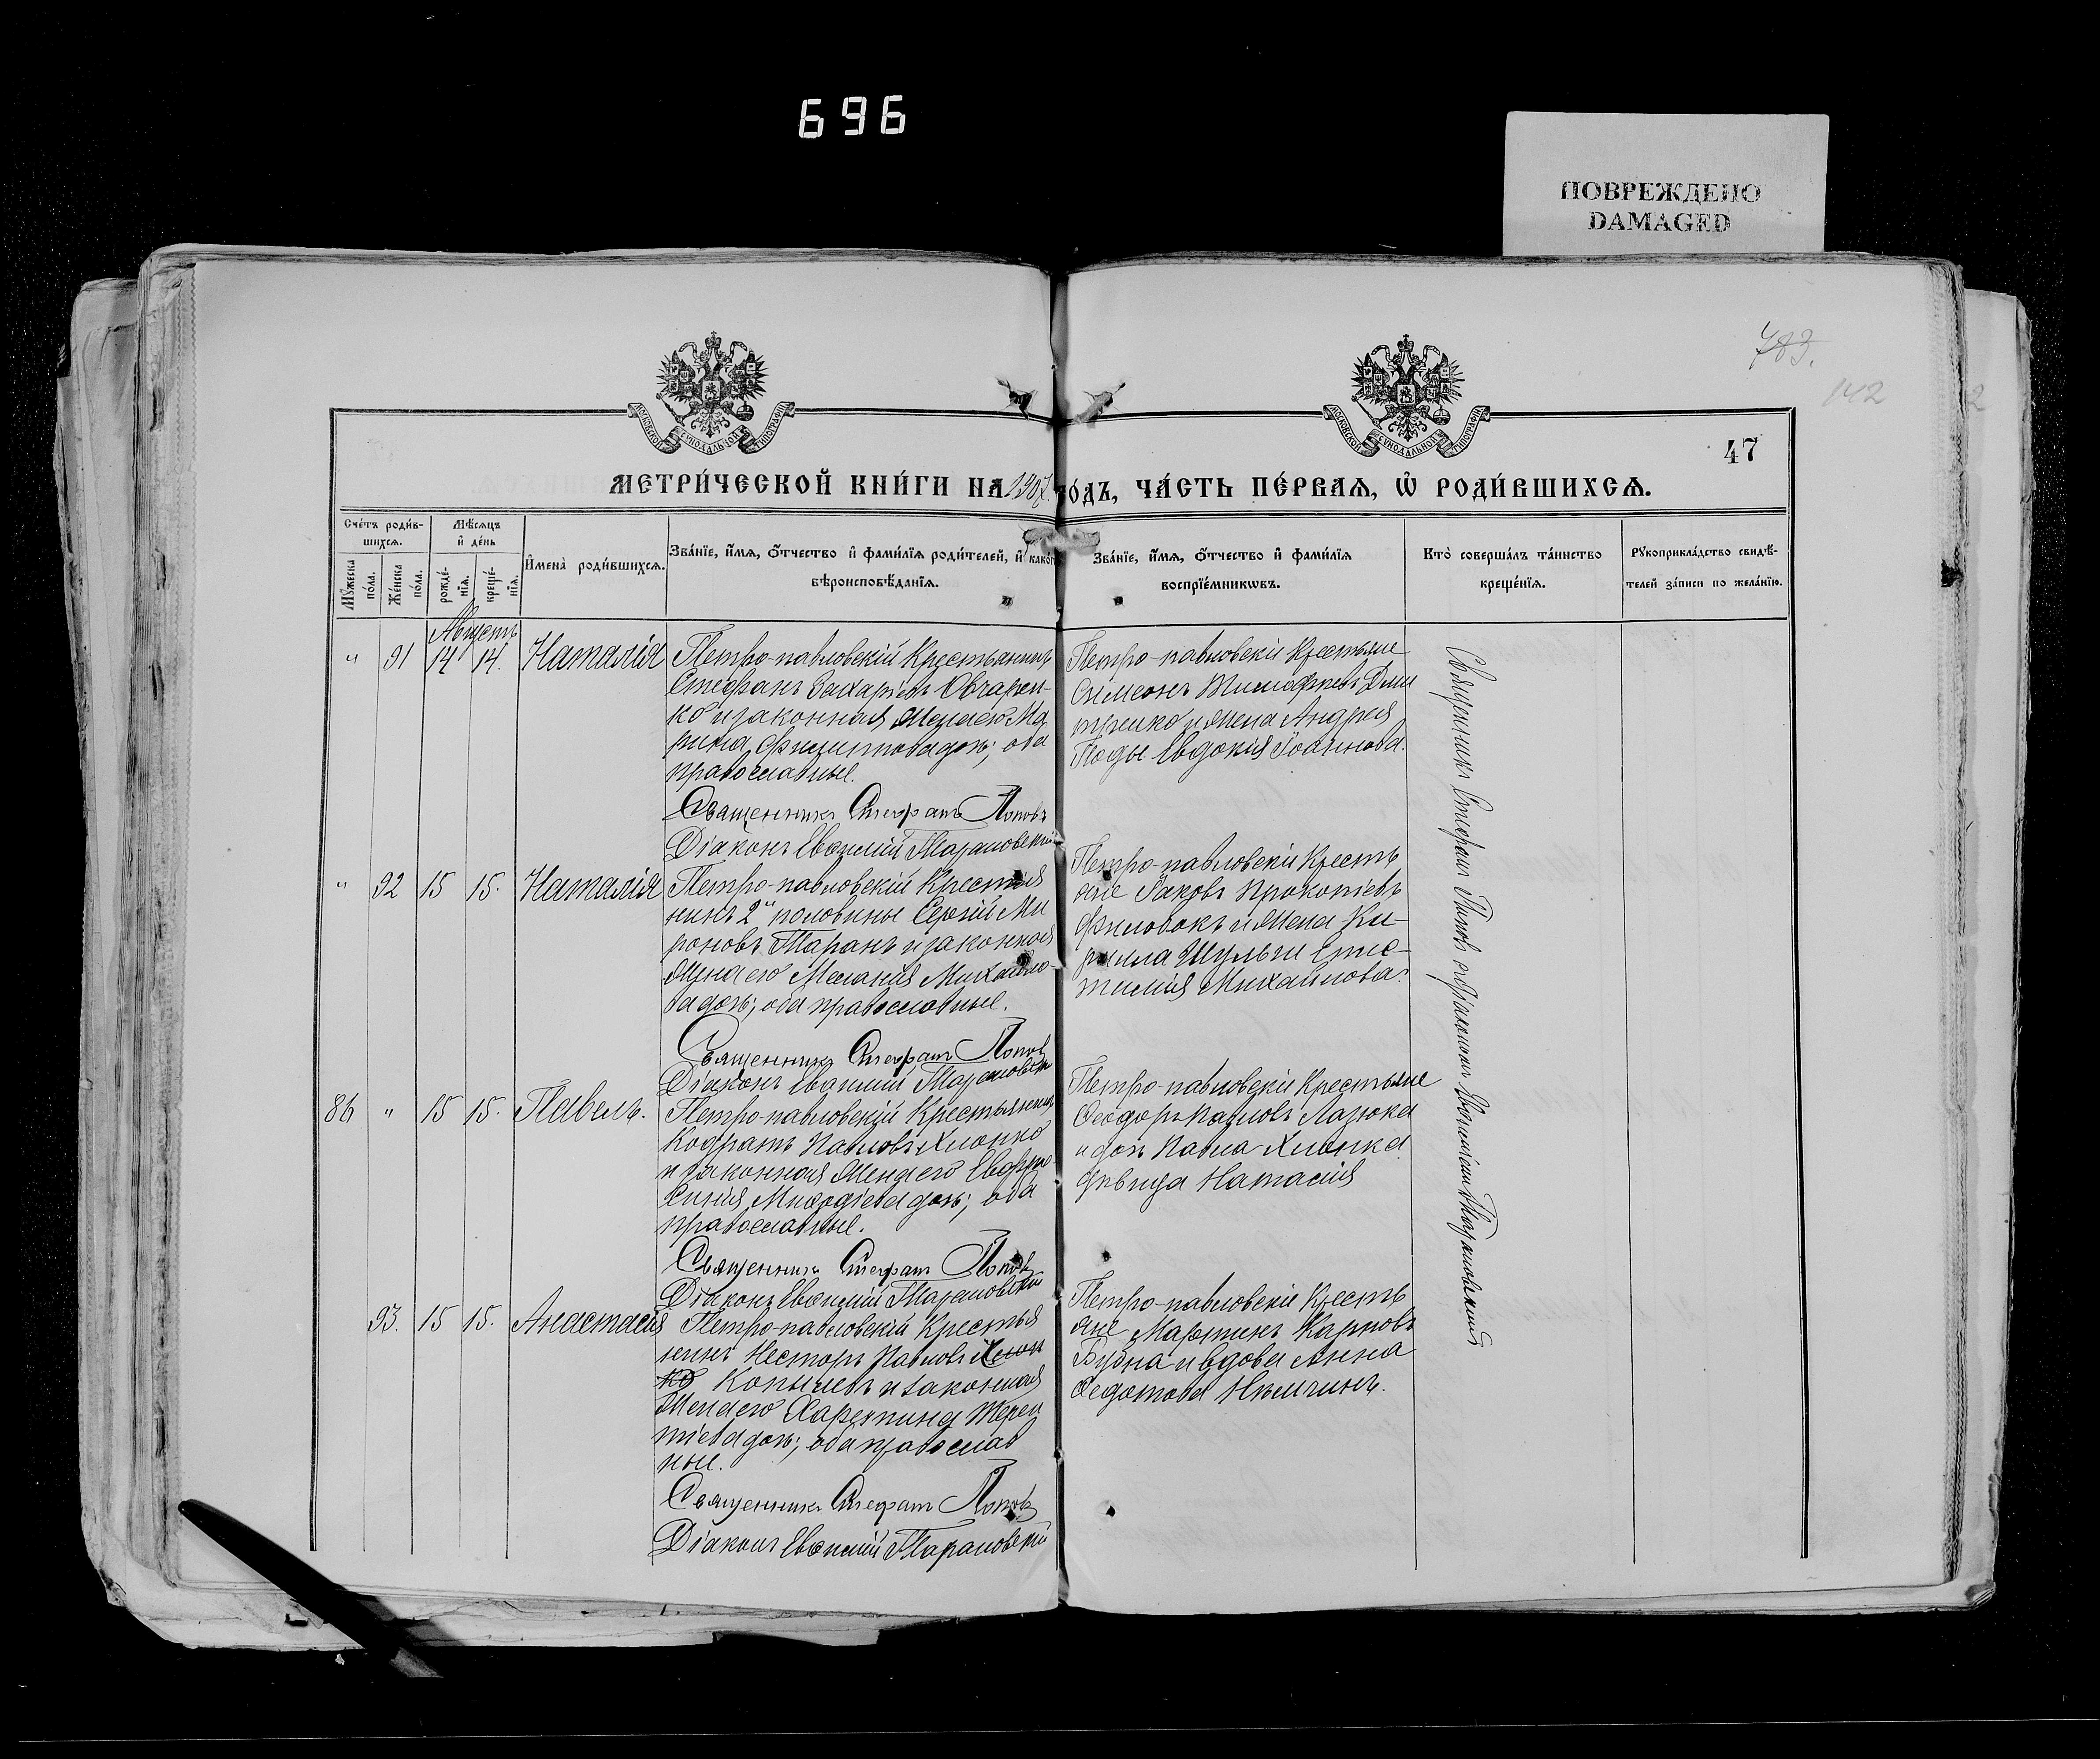 696
ПОВРЕЖДЕНО
DAMAGED
783.
142
47
МОСКОВСКОЙ СѴНОДАЛЬНОЙ ТИПОГРАФІИ
МОСКОВСКОЙ СѴНОДАЛЬНОЙ ТИПОГРАФІИ
МЕТРИ́ЧЕСКОЙ КНИ́ГИ НА 1907 го́дъ, ЧА́СТЬ ПЕ́РВАѦ, Ѽ РОДИ́ВШИХСѦ.
Сче́тъ роди́в-
шихсѧ.
Мꙋ́жеска
по́ла.
Же́нска
по́ла.
Мѣ́сѧцъ
и҆ де́нь
рожде́-
нїѧ.
креще́-
нїѧ.
И҆мена̀ роди́вшихсѧ.
Зва́нїе, и҆́мѧ, ѻ҆́тчество и҆ фами́лїѧ роди́телей, и҆ како́гѡ
вѣроисповѣ́данїѧ.
Зва́нїе, и҆́мѧ, ѻ҆́тчество и҆ фами́лїѧ
воспрїе́мникѡвъ.
Кто̀ соверша́лъ та́инство
креще́нїѧ.
Рꙋкоприкла́дство свидѣ́-
телей за́писи по жела́нїю.
Августъ
" 91 14 14. Наталія
Петро-павловскій Крестьянинъ
Стефанъ Захаріевъ Овчарен-
ко и законная жена его Ма
рина Филиппова дочь; оба
православные.
Священникъ Стефанъ Поповъ
Діаконъ Евгеній Тарановскій
Петро-павловскіе Крестьяне
Симеонъ Тимофеевъ Дми
тренко и жена Андрея
Поды Евдокія Іоаннова.
" 92 15 15. Наталія
Петро-павловскій Крестья
нинъ 2й половины Сергій Ми
роновъ Таранъ и законная
жена его Мелания Михайло-
ва дочь; оба православные.
Священникъ Стефанъ Поповъ
Діаконъ Евгеній Тарановскій
Петро-павловскіе Кресть
яне Іаковъ Прокопіевъ
и жена Ки-
рилла Шульги Епис-
тимія Михайлова.
86 " 15 15. Павелъ.
Петро-павловскій Крестьянинъ
Кодратъ Павловъ Хмонко
и законная жена его Евфро-
синія Мифодіева дочь; оба
православные.
Священникъ Стефанъ Поповъ
Діаконъ Евгеній Тарановскій
Петро-павловскіе Крестьяне
Ѳеодоръ Павловъ Лазюка
и дочь Павла Хмонка
дѣвица Наталія
93. 15 15. Анастасія
Петро-павловскій Крестья
нинъ Несторъ Павловъ Хмон
ко Копычевъ и законная
жена его Харитина Терен
тіева дочь; оба православ
ные.
Священникъ Стефанъ Поповъ
Діаконъ Евгеній Тарановскій
Петро-павловскіе Кресть
яне Мартинъ Карповъ
Будна и вдова Анна
Ѳедотова Нѣмчинъ.
Священникъ Стефанъ Поповъ съ діакономъ Евгеніемъ Тарановскимъ